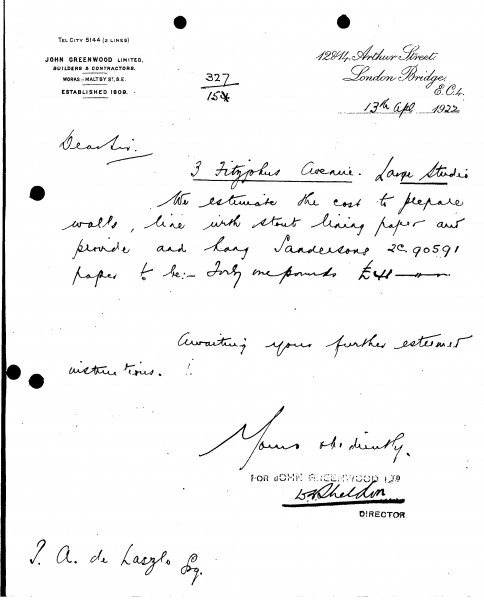 TEL CITY 5144 (2 LINES)
JOHN GREENWOOD LIMITED,
BUILDERS & CONTRACTORS.
WORKS - MALTBY ST, S.E.
ESTABLISHED 1809.
12 & 14, Arthur Street,
London Bridge,
E.C.4.
13th Apl 1922
327
154
Dear Sir.
3 Fitzjohns Avenue. Large Studio
We estimate the cost to prepare
walls, line with stout lining paper and
provide and hang Sandersons 2C. 90591
paper to be:- Forty one pounds £41
Awaiting your further esteemed
instructions.
Yours obediently.
FOR JOHN GREENWOOD LTD
Sheldon
DIRECTOR
P. A. de Laszlo Esq.